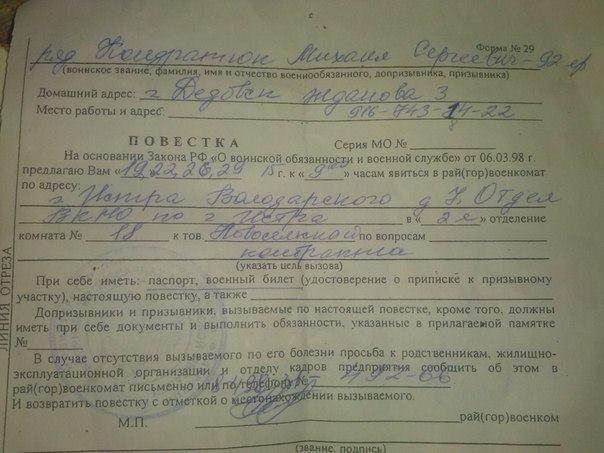 Форма № 29
ряд Кондратюк Михаил Сергеевич - 92 гр
(воинское звание, фамилия, имя и отчество военнообязанного, допризывника, призывника)
Домашний адрес: г Дедовск Жданова 3
Место работы и адрес: 916-743-14-22
ПОВЕСТКА Серия МО №
На основании Закона РФ «О воинской обязанности и военной службе» от 06.03.98 г.
предлагаю Вам «19, 22, 26, 29 15 г. к « » часам явиться в рай(гор)военкомат
по адресу:
г Истра Володарского д Отдел
ВКМО по г Истра в « 2е » отделение
комната № 18 к тов. по вопросам
контракта
(указать цель вызова)
При себе иметь: паспорт, военный билет (удостоверение о приписке к призывному
участку), настоящую повестку, а также
Допризывники и призывники, вызываемые по настоящей повестке, кроме того, должны
иметь при себе документы и выполнить обязанности, указанные в прилагаемой памятке
№
В случае отсутствия вызываемого по его болезни просьба к родственникам, жилищно-
эксплуатационной организации и отделу кадров предприятия сообщить об этом в
рай(гор)военкомат письменно или по телефону № 492-66
И возвратить повестку с отметкой о местонахождении вызываемого.
М.П. рай(гор)военком
(звание, подпись)
ЛИНИЯ ОТРЕЗА